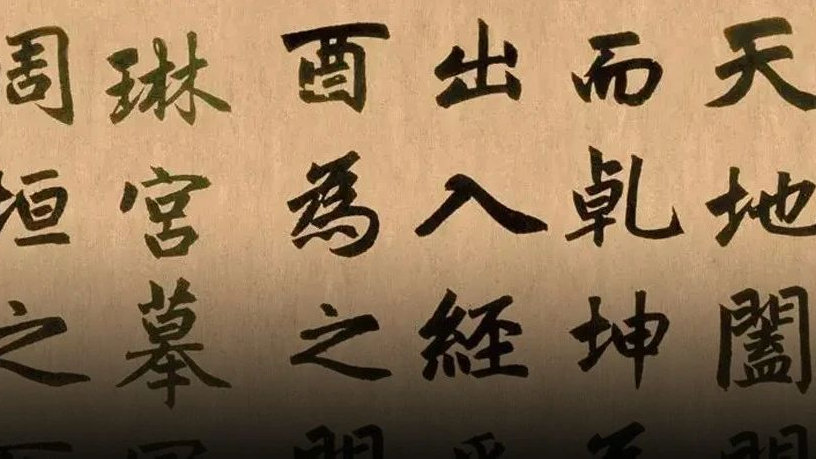 天地闔
而乹坤
出入經
酉為之
琳宮摹
周垣之